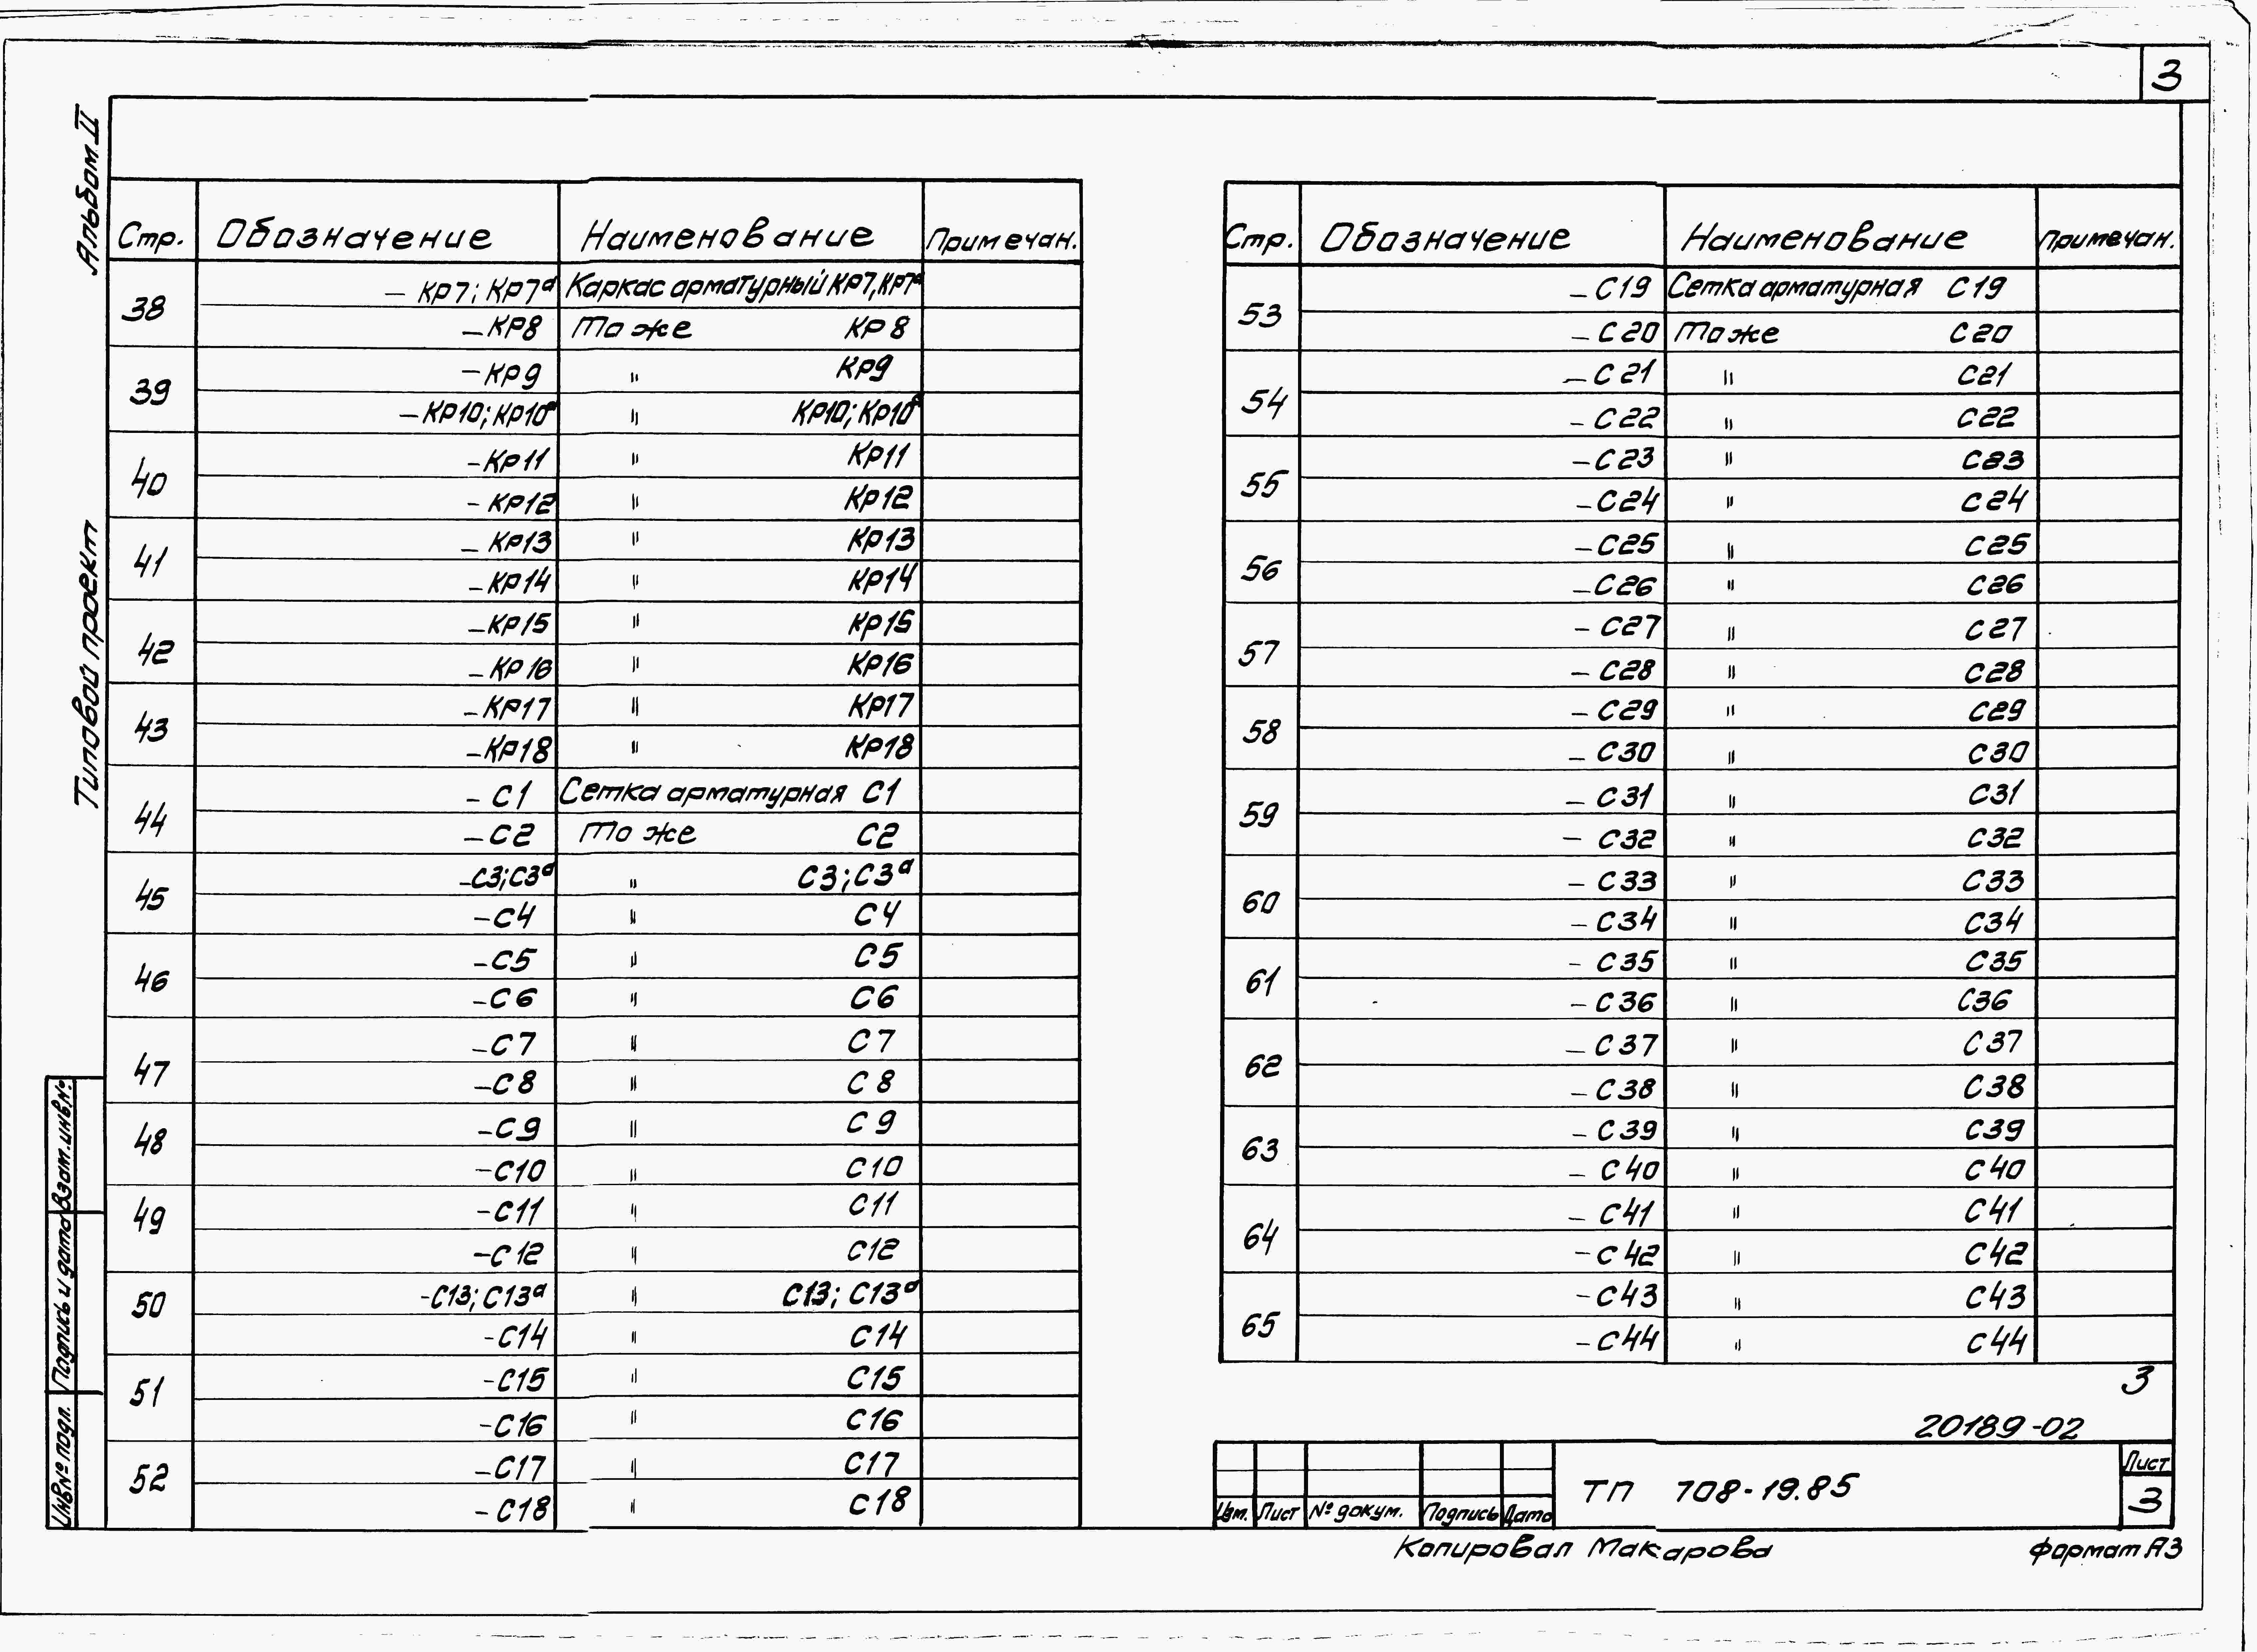 3
Альбом II
Типовой проект
Стр. Обозначение Наименование Примечан.
38 – КР7; КР7а Каркас арматурный КР7, КР7а
– КР8 То же КР8
39 – КР9 " КР9
– КР10; КР10а " КР10; КР10а
40 – КР11 " КР11
– КР12 " КР12
41 – КР13 " КР13
– КР14 " КР14
42 – КР15 " КР15
– КР16 " КР16
43 – КР17 " КР17
– КР18 " КР18
44 – С1 Сетка арматурная С1
– С2 То же С2
45 – С3; С3а " С3; С3а
– С4 " С4
46 – С5 " С5
– С6 " С6
47 – С7 " С7
– С8 " С8
48 – С9 " С9
– С10 " С10
49 – С11 " С11
– С12 " С12
50 – С13; С13а " С13; С13а
– С14 " С14
51 – С15 " С15
– С16 " С16
52 – С17 " С17
– С18 " С18
Стр. Обозначение Наименование Примечан.
53 – С19 Сетка арматурная С19
– С20 То же С20
54 – С21 " С21
– С22 " С22
55 – С23 " С23
– С24 " С24
56 – С25 " С25
– С26 " С26
57 – С27 " С27
– С28 " С28
58 – С29 " С29
– С30 " С30
59 – С31 " С31
– С32 " С32
60 – С33 " С33
– С34 " С34
61 – С35 " С35
– С36 " С36
62 – С37 " С37
– С38 " С38
63 – С39 " С39
– С40 " С40
64 – С41 " С41
– С42 " С42
65 – С43 " С43
– С44 " С44
3
20189-02
Изм. Лист № докум. Подпись Дата
ТП 708-19.85
Лист
3
Копировал Макарова
Формат А3
Взам. инв. №
Подпись и дата
Инв № подл.